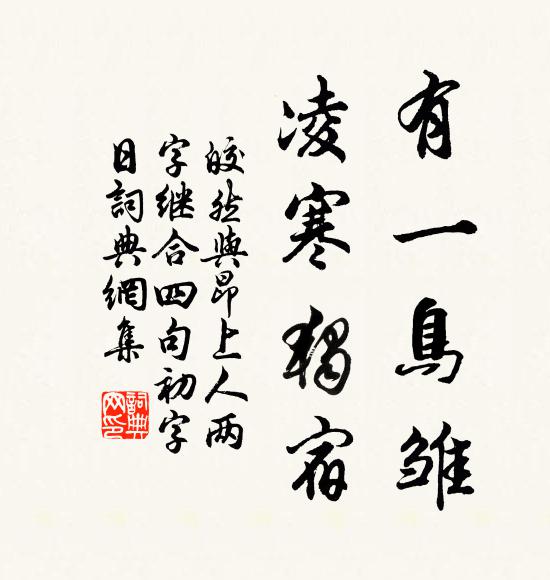 有一鳥雛
凌寒獨宿
皎然與昂上人两
字继合四句初字
日詞典網集
詞典网印